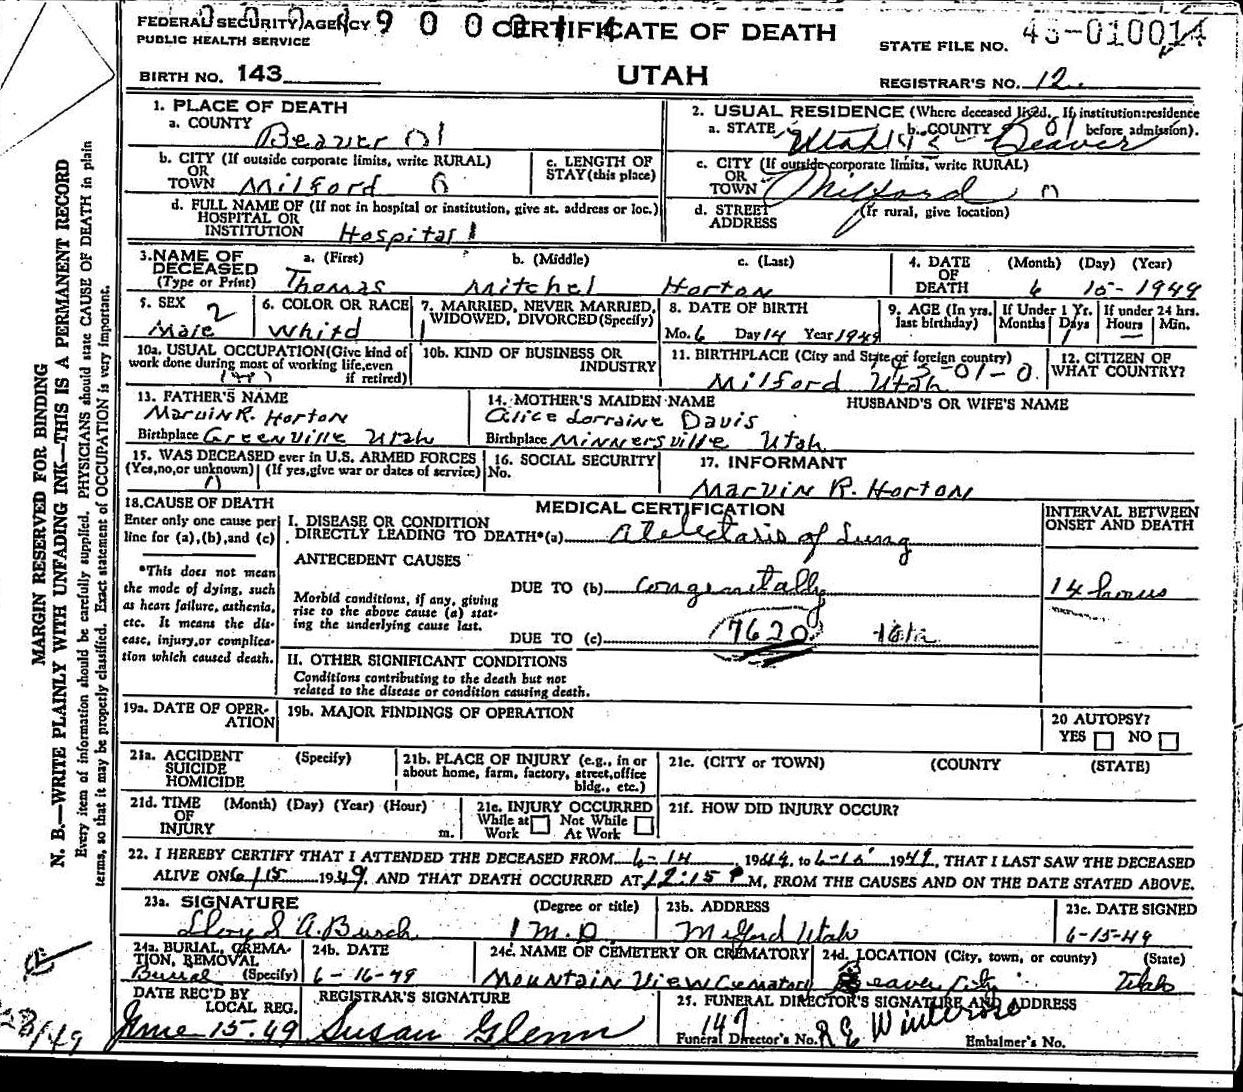 FEDERAL SECURITY AGENCY 9 0 0 0 CERTIFICATE OF DEATH
PUBLIC HEALTH SERVICE
STATE FILE NO. 43-010014
BIRTH NO. 143
UTAH
REGISTRAR'S NO. 12
1. PLACE OF DEATH
a. COUNTY Beaver 01
2. USUAL RESIDENCE (Where deceased lived. If institution: residence before admission).
a. STATE Utah b. COUNTY Beaver
b. CITY (If outside corporate limits, write RURAL)
OR
TOWN Milford
c. LENGTH OF
STAY (this place)
c. CITY (If outside corporate limits, write RURAL)
OR
TOWN Milford
d. FULL NAME OF (If not in hospital or institution, give st. address or loc.)
HOSPITAL OR
INSTITUTION Hospital
d. STREET (If rural, give location)
ADDRESS
3. NAME OF DECEASED (Type or Print)
a. (First) b. (Middle) c. (Last)
Thomas Mitchel Horton
4. DATE OF DEATH (Month) (Day) (Year)
6 15-1949
5. SEX 2
Male
6. COLOR OR RACE
White
7. MARRIED, NEVER MARRIED, WIDOWED, DIVORCED (Specify)
1
8. DATE OF BIRTH
Mo. 6 Day 14 Year 1949
9. AGE (In yrs. last birthday)
If Under 1 Yr. Months Days 1
If under 24 hrs. Hours Min.
10a. USUAL OCCUPATION (Give kind of work done during most of working life, even if retired)
10b. KIND OF BUSINESS OR INDUSTRY
11. BIRTHPLACE (City and State or foreign country)
43-01-0
Milford Utah
12. CITIZEN OF WHAT COUNTRY?
13. FATHER'S NAME
Marvin R. Horton
Birthplace Greenville Utah
14. MOTHER'S MAIDEN NAME
Alice Lorraine Davis
Birthplace Minnersville Utah
HUSBAND'S OR WIFE'S NAME
15. WAS DECEASED ever in U.S. ARMED FORCES
(Yes, no, or unknown) (If yes, give war or dates of service)
16. SOCIAL SECURITY No.
17. INFORMANT
Marvin R. Horton
18. CAUSE OF DEATH
Enter only one cause per line for (a), (b), and (c)
MEDICAL CERTIFICATION
INTERVAL BETWEEN ONSET AND DEATH
I. DISEASE OR CONDITION
DIRECTLY LEADING TO DEATH*(a) Atelectasis of Lung
ANTECEDENT CAUSES
*This does not mean the mode of dying, such as heart failure, asthenia, etc. It means the disease, injury, or complication which caused death.
DUE TO (b) Congenitally
14 hours
Morbid conditions, if any, giving rise to the above cause (a) stating the underlying cause last.
DUE TO (c) 7620
II. OTHER SIGNIFICANT CONDITIONS
Conditions contributing to the death but not related to the disease or condition causing death.
19a. DATE OF OPERATION
19b. MAJOR FINDINGS OF OPERATION
20 AUTOPSY?
YES NO
21a. ACCIDENT SUICIDE HOMICIDE (Specify)
21b. PLACE OF INJURY (e.g., in or about home, farm, factory, street, office bldg., etc.)
21c. (CITY or TOWN) (COUNTY (STATE)
21d. TIME OF INJURY (Month) (Day) (Year) (Hour) m.
21e. INJURY OCCURRED
While at Work Not While At Work
21f. HOW DID INJURY OCCUR?
22. I HEREBY CERTIFY THAT I ATTENDED THE DECEASED FROM 6-14 1949, to 6-15 1949, THAT I LAST SAW THE DECEASED
ALIVE ON 6/15 1949, AND THAT DEATH OCCURRED AT 12:15 P M, FROM THE CAUSES AND ON THE DATE STATED ABOVE.
23a. SIGNATURE (Degree or title)
Lloyd A. Busch M.D
23b. ADDRESS
Milford Utah
23c. DATE SIGNED
6-15-49
24a. BURIAL, CREMATION, REMOVAL (Specify)
Burial
24b. DATE
6-16-49
24c. NAME OF CEMETERY OR CREMATORY
Mountain View Cematory
24d. LOCATION (City, town, or county) (State)
Beaver City Utah
DATE REC'D BY LOCAL REG.
June 15-49
REGISTRAR'S SIGNATURE
Susan Glenn
25. FUNERAL DIRECTOR'S SIGNATURE AND ADDRESS
147 R E Winterose
Funeral Director's No. Embalmer's No.
MARGIN RESERVED FOR BINDING
N. B.—WRITE PLAINLY WITH UNFADING INK—THIS IS A PERMANENT RECORD
Every item of information should be carefully supplied. PHYSICIANS should state CAUSE OF DEATH in plain
terms, so that it may be properly classified. Exact statement of OCCUPATION is very important.